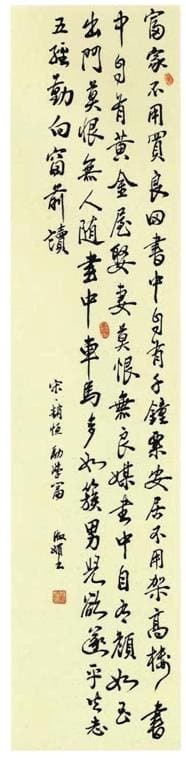 富家不用買良田書中自有千鐘粟安居不用架高樓書
中自有黃金屋娶妻莫恨無良媒書中自有顏如玉
出門莫恨無人随書中車馬多如簇男兒欲遂平生志
五經勤向窗前讀
宋·趙恒勸學篇